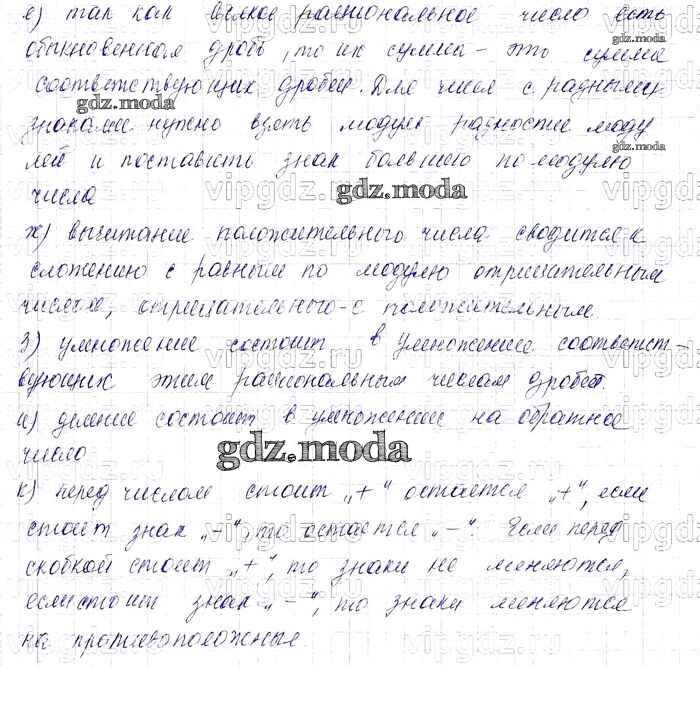 е) так как всякое рациональное число есть
обыкновенная дробь, то их сумма - это сумма
соответствующих дробей. Для чисел с разными
gdz.moda
знаками нужно взять модуль разности моду
gdz.moda
лей и поставить знак большего по модулю
числа
gdz.moda
vipgdz.ru
ж) вычитание положительного числа сводится к
сложению с равным по модулю отрицательным
числом, отрицательного - с положительным.
vipgdz.ru
з) умножение состоит в умножении соответст-
вующих этим рациональным числам дробей.
и) деление состоит в умножении на обратное
gdz.moda
число
vipgdz.ru
к) перед числом стоит „+“ остается „+“, если
стоит знак „-“, то остается „-“. Если перед
скобкой стоит „+“, то знаки не меняются,
если стоит знак „-“, то знаки меняются
на противоположные.
vipgdz.ru